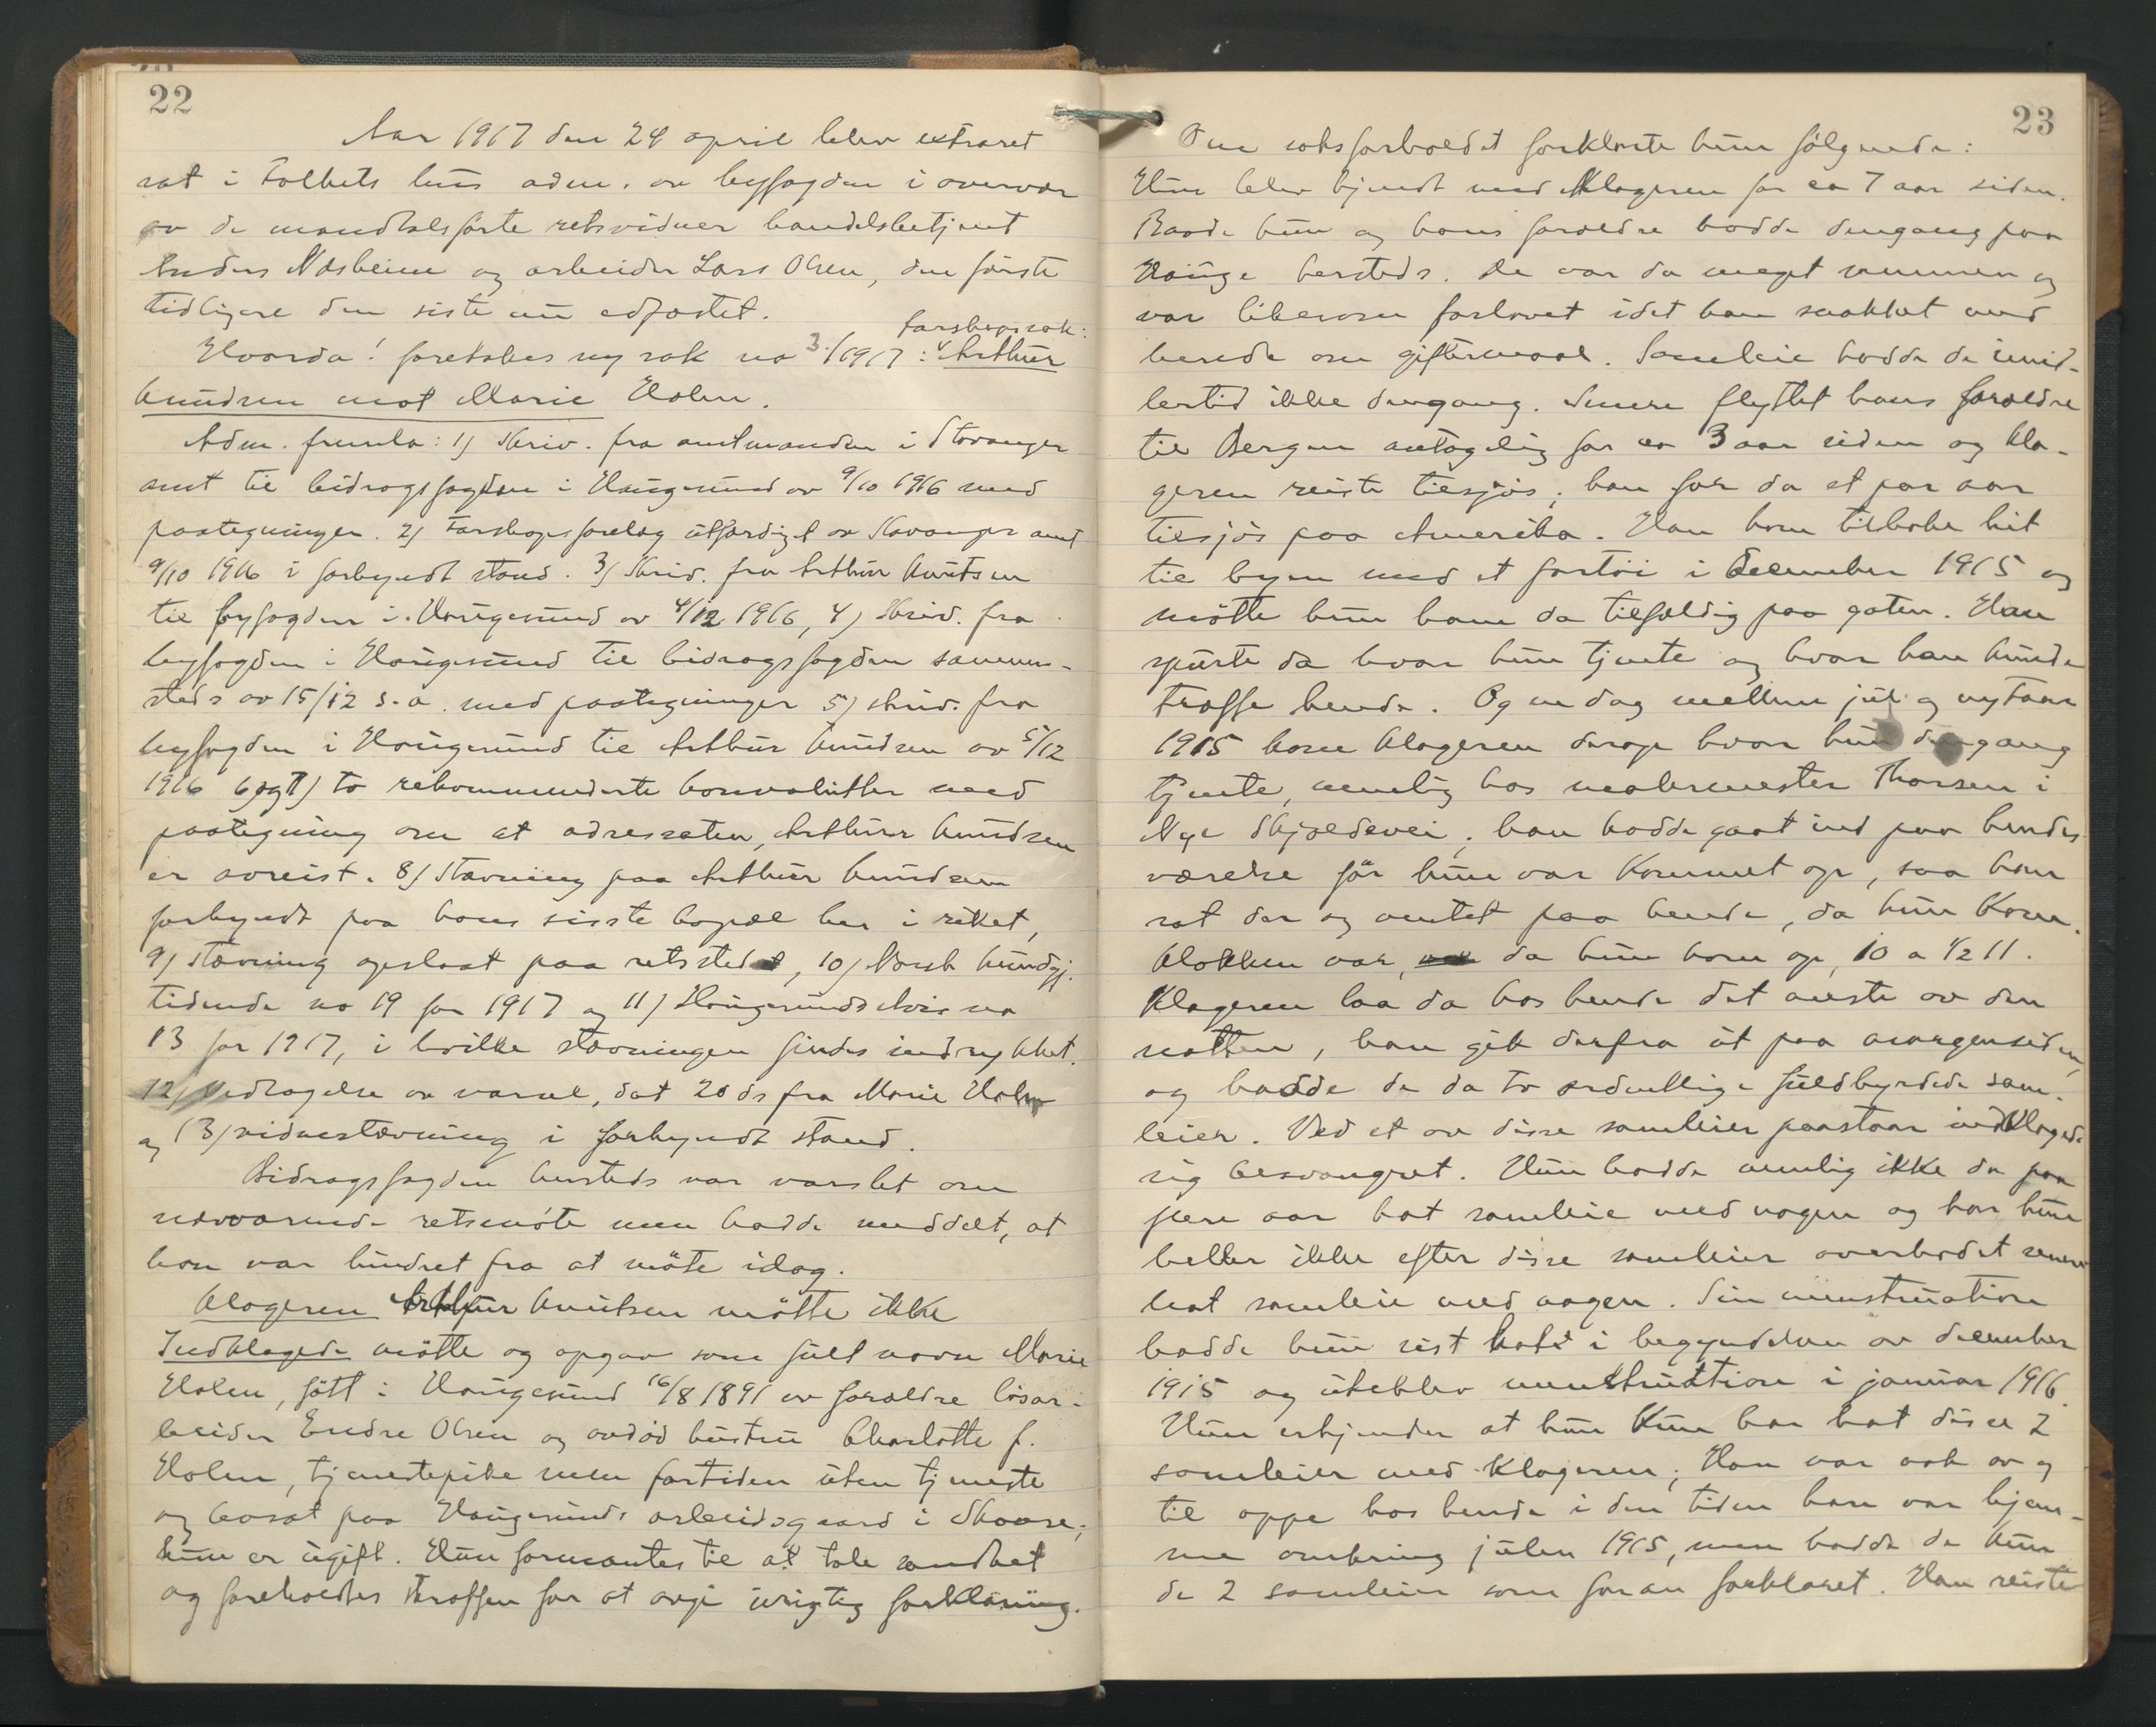 22
Aar 1917 den 24 april blev extraret
sat i Folkets hus adm. av byfogden i overvær
av de mandtalsførte retsvidner handelsbetjent
Anders Næsheim og arbeider Lars Olsen, den første
tidligere den siste nu edfæstet.
Farskapssak:
Hvorda! foretokes ny sak no 3/1917: Arthur
Knudsen mot Marie Holen.
Adm. fremla: 1) Skriv. fra amtmanden i Stavanger
amt til bidragsfogden i Haugesund av 9/10 1916 med
paategninger. 2) Farskapsforelæg utfærdiget av Stavanger amt
9/10 1916 i forkyndt stand. 3) Skriv. fra Arthur Knutsen
til byfogden i Haugesund av 4/12 1916, 4) Skriv. fra
byfogden i Haugesund til bidragsfogden sammen-
steds av 15/12 s.a. med paategninger 5) skriv. fra
byfogden i Haugesund til Arthur Knudsen av 5/12
1916 6) og 7) to rekommanderte konvolutter med
paategning om at adressaten, Arthur Knudsen
er avreist. 8) Stævning paa Arthur Knudsen
forkyndt paa hans sisste bopæl her i riket,
9) Stævning opslaat paa retsstedet, 10) Norsk kundgj.
tidende no 19 for 1917 og 11) Haugesunds Avis no
13 for 1917, i hvilke stævningen findes indrykket.
12) Vedtagelse av varsel, dat 20 ds fra Marie Holen
og 13) vidnestævning i forkyndt stand.
Bidragsfogden hersteds var varslet om
nærværende retsmöte men hadde meddelt, at
han var hindret fra at möte idag.
Klageren Arthur Knutsen mötte ikke
Indklagede mötte og opgav som fult navn Marie
Holen, född i Haugesund 16/8 1891 av forældre løsar-
beider Endre Olsen og avdöd hustru Charlotte f.
Holen, tjenestepike men fortiden uten tjeneste
og bosat paa Haugesunds arbeidsgaard i Skaare;
hun er ugift. Hun formantes til at tale sandhet
og foreholdtes straffen for at avgi urigtig forklaring.
23
Om saksforholdet forklarte hun følgende:
Hun blev kjendt med Klageren for ca 7 aar siden.
Baade hun og hans forældre bodde dengang paa
Hauge hersteds. De var da meget sammen og
var likesom forlovet idet han snakket med
hende om giftermaal. Samleie hadde de imid-
lertid ikke dengang. Senere flyttet hans forældre
til Bergen antagelig for ca 3 aar siden og kla-
geren reiste tilsjös; han for da et par aar
tilsjös paa Amerika. Han kom tilbake hit
til byen med et fartöi i december 1915 og
mötte hun ham da tilfældig paa gaten. Han
spurte da hvor hun tjente og hvor han kunde
træffe hende. Og en dag mellem jul og nytaar
1915 kom klageren derop hvor hun dengang
tjente, nemlig hos malermester Thorsen i
Nye Skjoldevei; han hadde gaat ind paa hendes
værelse för hun var kommet op, saa han
sat der og ventet paa hende, da hun kom.
Klokken var, da hun kom op, 10 a 1/2 11.
Klageren laa da hos hende det meste av den
natten, han gik derfra ut paa morgensiden,
og hadde de da to ordentlige fuldbyrdede sam-
leier. Ved et av disse samleier paastaar indklagede
sig besvangret. Hun hadde nemlig ikke da paa
flere aar hat samleie med nogen og har hun
heller ikke efter disse samleier overhodet senere
hat samleie med nogen. Sin menstruation
hadde hun sist hat i begyndelsen av december
1915 og uteblev menstruation i januar 1916.
Hun erkjender at hun kun har hat disse 2
samleier med klageren; Han var nok av og
til oppe hos hende i den tiden han var hjem-
me omkring julen 1915, men hadde de kun
de 2 samleier som foran forklaret. Han reiste